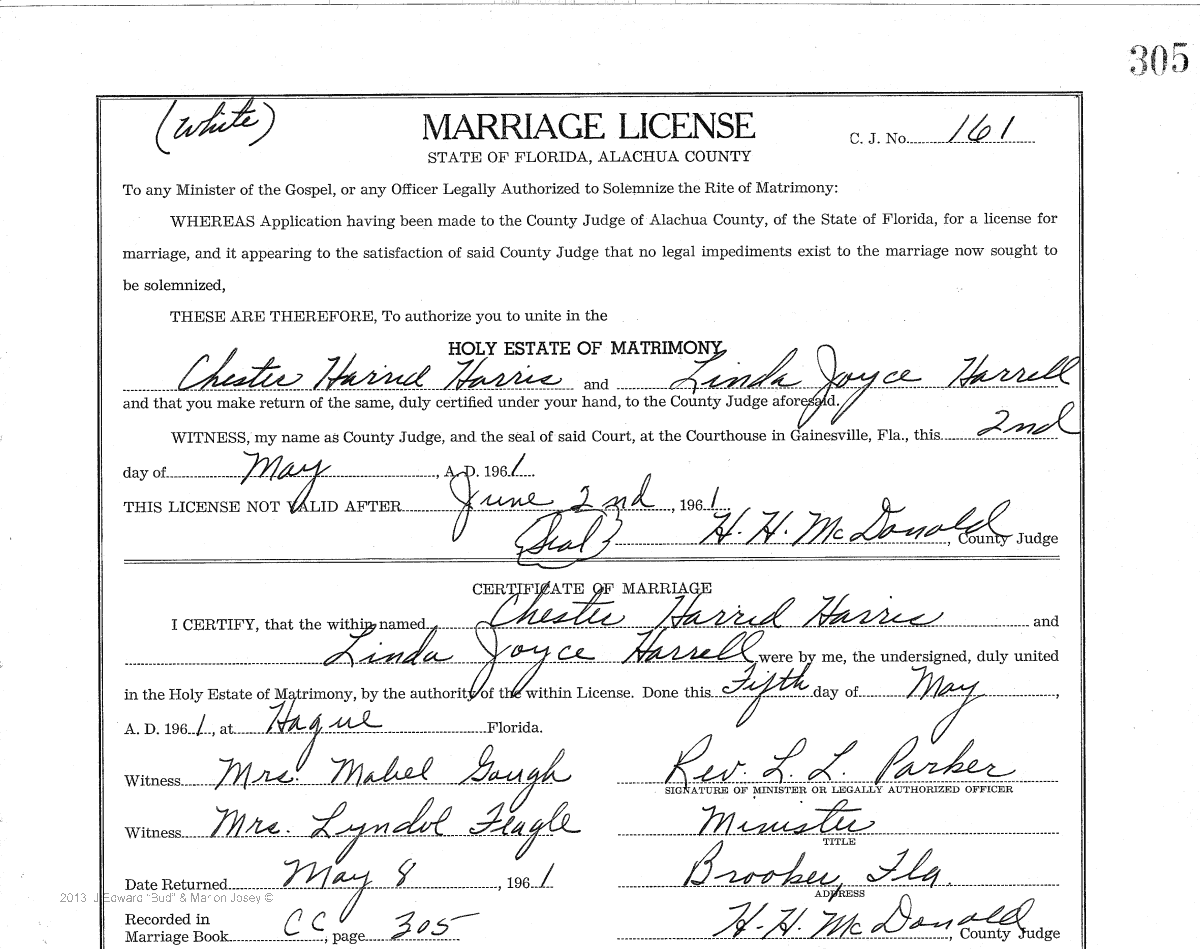 305
(White)
MARRIAGE LICENSE
C. J. No. 161
STATE OF FLORIDA, ALACHUA COUNTY
To any Minister of the Gospel, or any Officer Legally Authorized to Solemnize the Rite of Matrimony:
WHEREAS Application having been made to the County Judge of Alachua County, of the State of Florida, for a license for
marriage, and it appearing to the satisfaction of said County Judge that no legal impediments exist to the marriage now sought to
be solemnized,
THESE ARE THEREFORE, To authorize you to unite in the
HOLY ESTATE OF MATRIMONY
Chester Harrid Harris and Linda Joyce Harrell
and that you make return of the same, duly certified under your hand, to the County Judge aforesaid.
WITNESS, my name as County Judge, and the seal of said Court, at the Courthouse in Gainesville, Fla., this 2nd
day of May, A. D. 1961.
THIS LICENSE NOT VALID AFTER June 2nd, 1961
(Seal) H. H. McDonald, County Judge
CERTIFICATE OF MARRIAGE
I CERTIFY, that the within named Chester Harrid Harris and
Linda Joyce Harrell were by me, the undersigned, duly united
in the Holy Estate of Matrimony, by the authority of the within License. Done this Fifth day of May,
A. D. 1961, at Hague Florida.
Witness Mrs. Mabel Gough Rev. L. L. Parker
SIGNATURE OF MINISTER OR LEGALLY AUTHORIZED OFFICER
Witness Mrs. Lyndol Feagle Minister
TITLE
Date Returned May 8, 1961 Brooker, Fla.
ADDRESS
2013 J Edward "Bud" & Marion Josey ©
Recorded in
Marriage Book CC, page 305 H. H. McDonald, County Judge